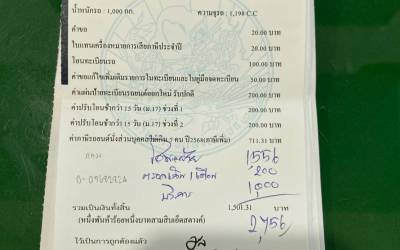 น้ำหนักรถ : 1,000 กก. ความจุรถ : 1,198 C.C
ค่าคำขอ 20.00 บาท
ใบแทนเครื่องหมายการเสียภาษีประจำปี 20.00 บาท
โอนทะเบียนรถ 100.00 บาท
ค่าขอแก้ไขเพิ่มเติมรายการในทะเบียนและใบคู่มือจดทะเบียน 50.00 บาท
ค่าแผ่นป้ายทะเบียนรถยนต์ออกใหม่ รับปกติ 200.00 บาท
ค่าปรับโอนช้ากว่า 15 วัน (ม.17) ช่วงที่ 1 200.00 บาท
ค่าปรับโอนช้ากว่า 15 วัน (ม.17) ช่วงที่ 2 200.00 บาท
ค่าภาษีรถยนต์นั่งส่วนบุคคลไม่เกิน 7 คน ปี2568(ภาษีเพิ่ม) 711.31 บาท
1556
200
1000
รวมเป็นเงินทั้งสิ้น 1,501.31 บาท
(หนึ่งพันห้าร้อยหนึ่งบาทสามสิบเอ็ดสตางค์) 2,756
ไว้เป็นการถูกต้องแล้ว